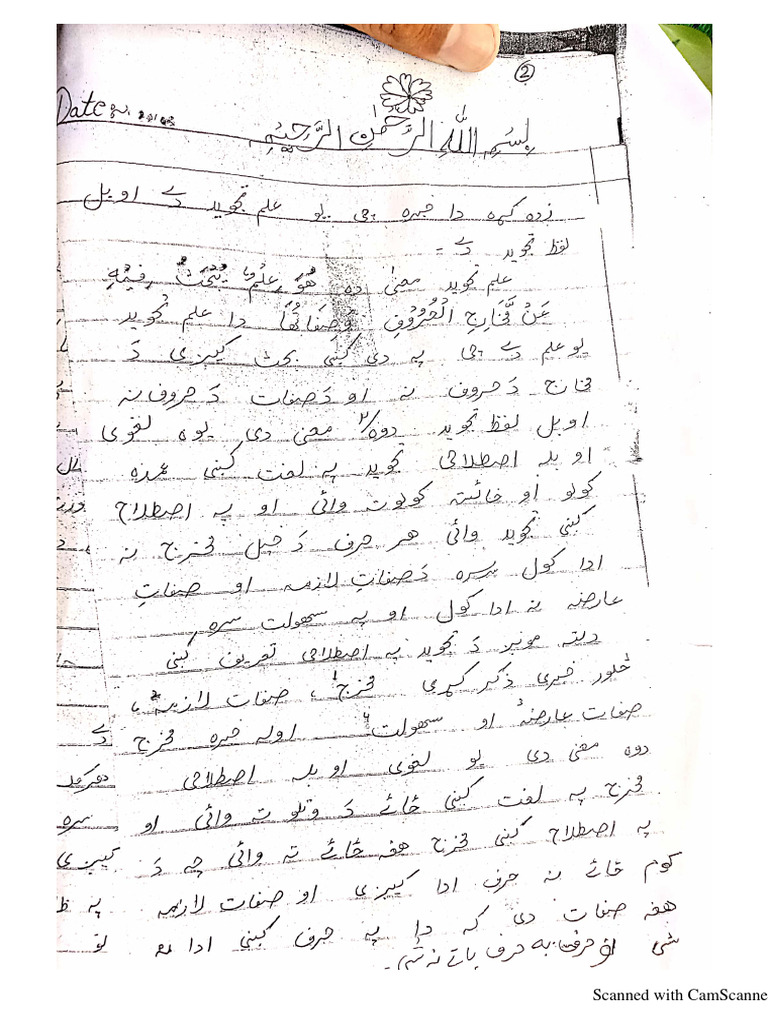 ②
Date
بِسْمِ اللّٰهِ الرَّحْمٰنِ الرَّحِيْمِ
زده کړه دا خبره چی یو علم تجوید دے اوبل
لفظ تجوید دے -
علم تجوید معنیٰ ده هُوَ عِلْمٌ یُبْحَثُ فِیْهِ
عَنْ مَّخَارِجِ الْحُرُوْفِ وَصِفَاتُهَا دا علم تجوید
یو علم دے چی په دی کښی بحث کیږی دَ
مخارج دَحروف نه او دَصفات دَ حروف نه
اوبل لفظ تجوید دوه۲ معنی دی یوه لغوی
او بله اصطلاحی تجوید په لغت کښی عمده
کولو او خائسته کولوت وائی او په اصطلاح
کښی تجوید وائی هر حرف دَ خپل مخرج نه
ادا کول سره دَصفاتِ لازمه او صفاتِ
عارضه نه ادا کول او په سهولت سره
دلته مونږ دَ تجوید په اصطلاحی تعریف کښی
څلور خبری ذکر کړی مخرج۱، صفات لازمه۲،
صفات عارضه۳ او سهولت۴ اوله خبره مخرج دے
دوه معنی دی یو لغوی او بله اصطلاحی
مخرج په لغت کښی ځائے دَ وتلو ت وائی او
په اصطلاح کښی مخرج هغه ځائے ته وائی چه دَ
کوم ځائے نه حرف ادا کیږی او صفات لازمه
هغه صفات دی که دا په حرف کښی ادا نه
شی نو حرف به حرف باتے نه شی.
Scanned with CamScanne